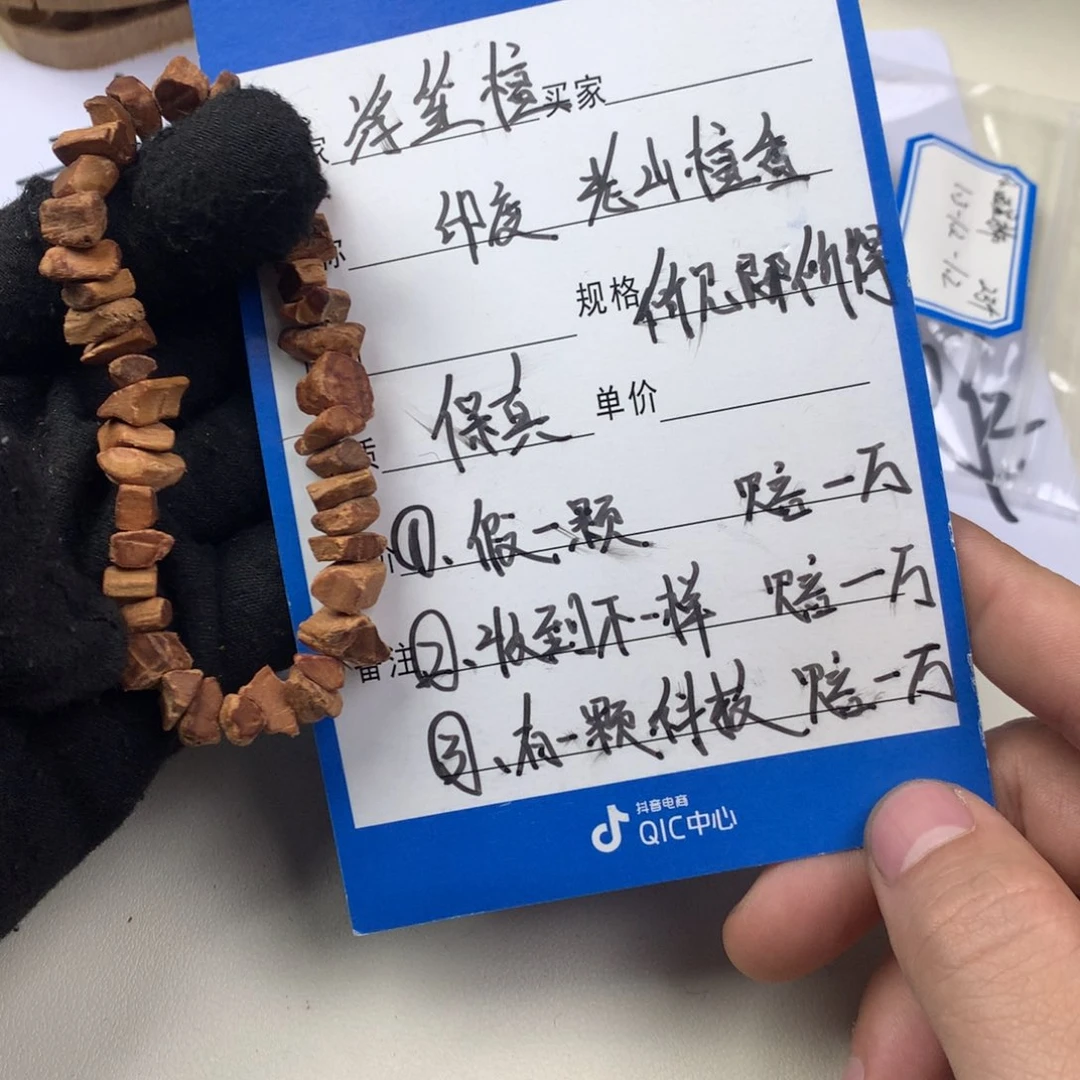 家 浮笙檀 买家
称 印度 老山檀香
规格 所见即所得
质 保真 单价
价 ①、假一颗 赔一万
备注 ②、收到不一样 赔一万
③、有一颗科技 赔一万
抖音电商
QIC中心